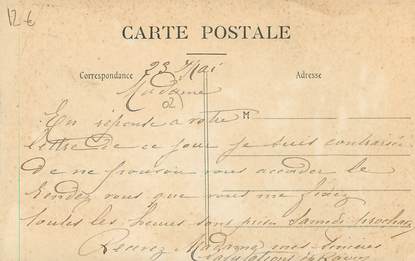 12 €
CARTE POSTALE
Correspondance
Adresse
23 Mai
Madame
M
En réponse a votre
lettre de ce jour je suis contrariée
de ne pouvoir vous accorder le
Rendez vous que vous me fixez
toutes les heures sont prises Samedi prochain
Recevez Madame mes sincères
Salutations